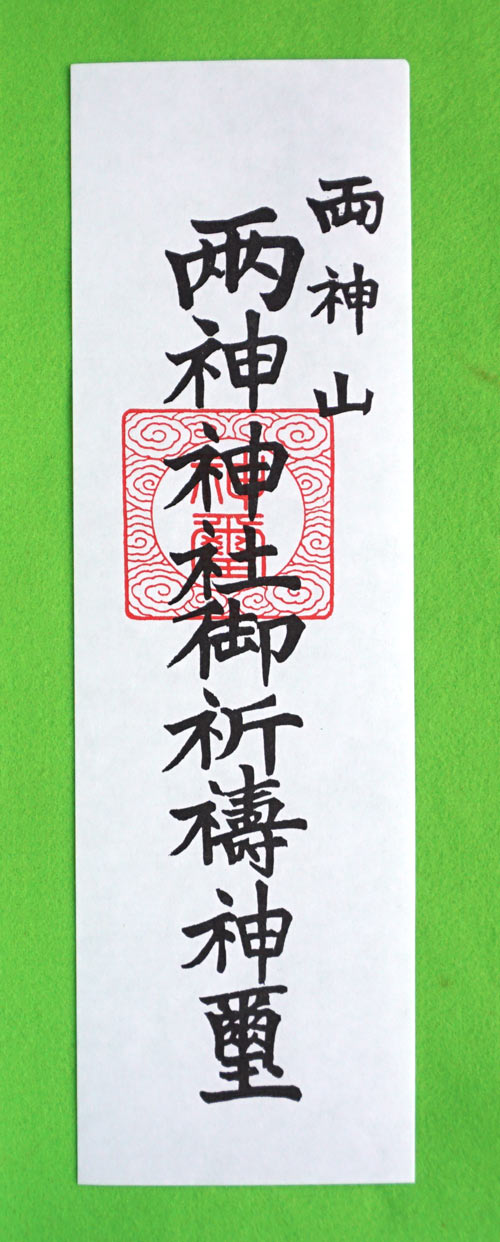 両神山
两神神社御祈禱神璽
神璽